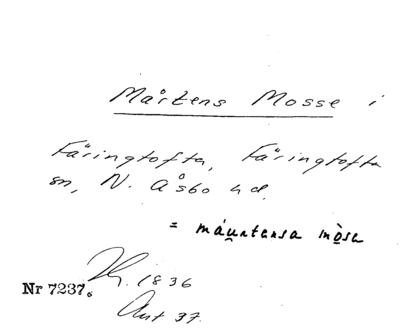 Mårtens Mosse i
Färingtofta, Färingtofta
sn, N. Åsbo hd.
= máu̯ntensa mòsa
1836
Nr 7237.
Ant 37.